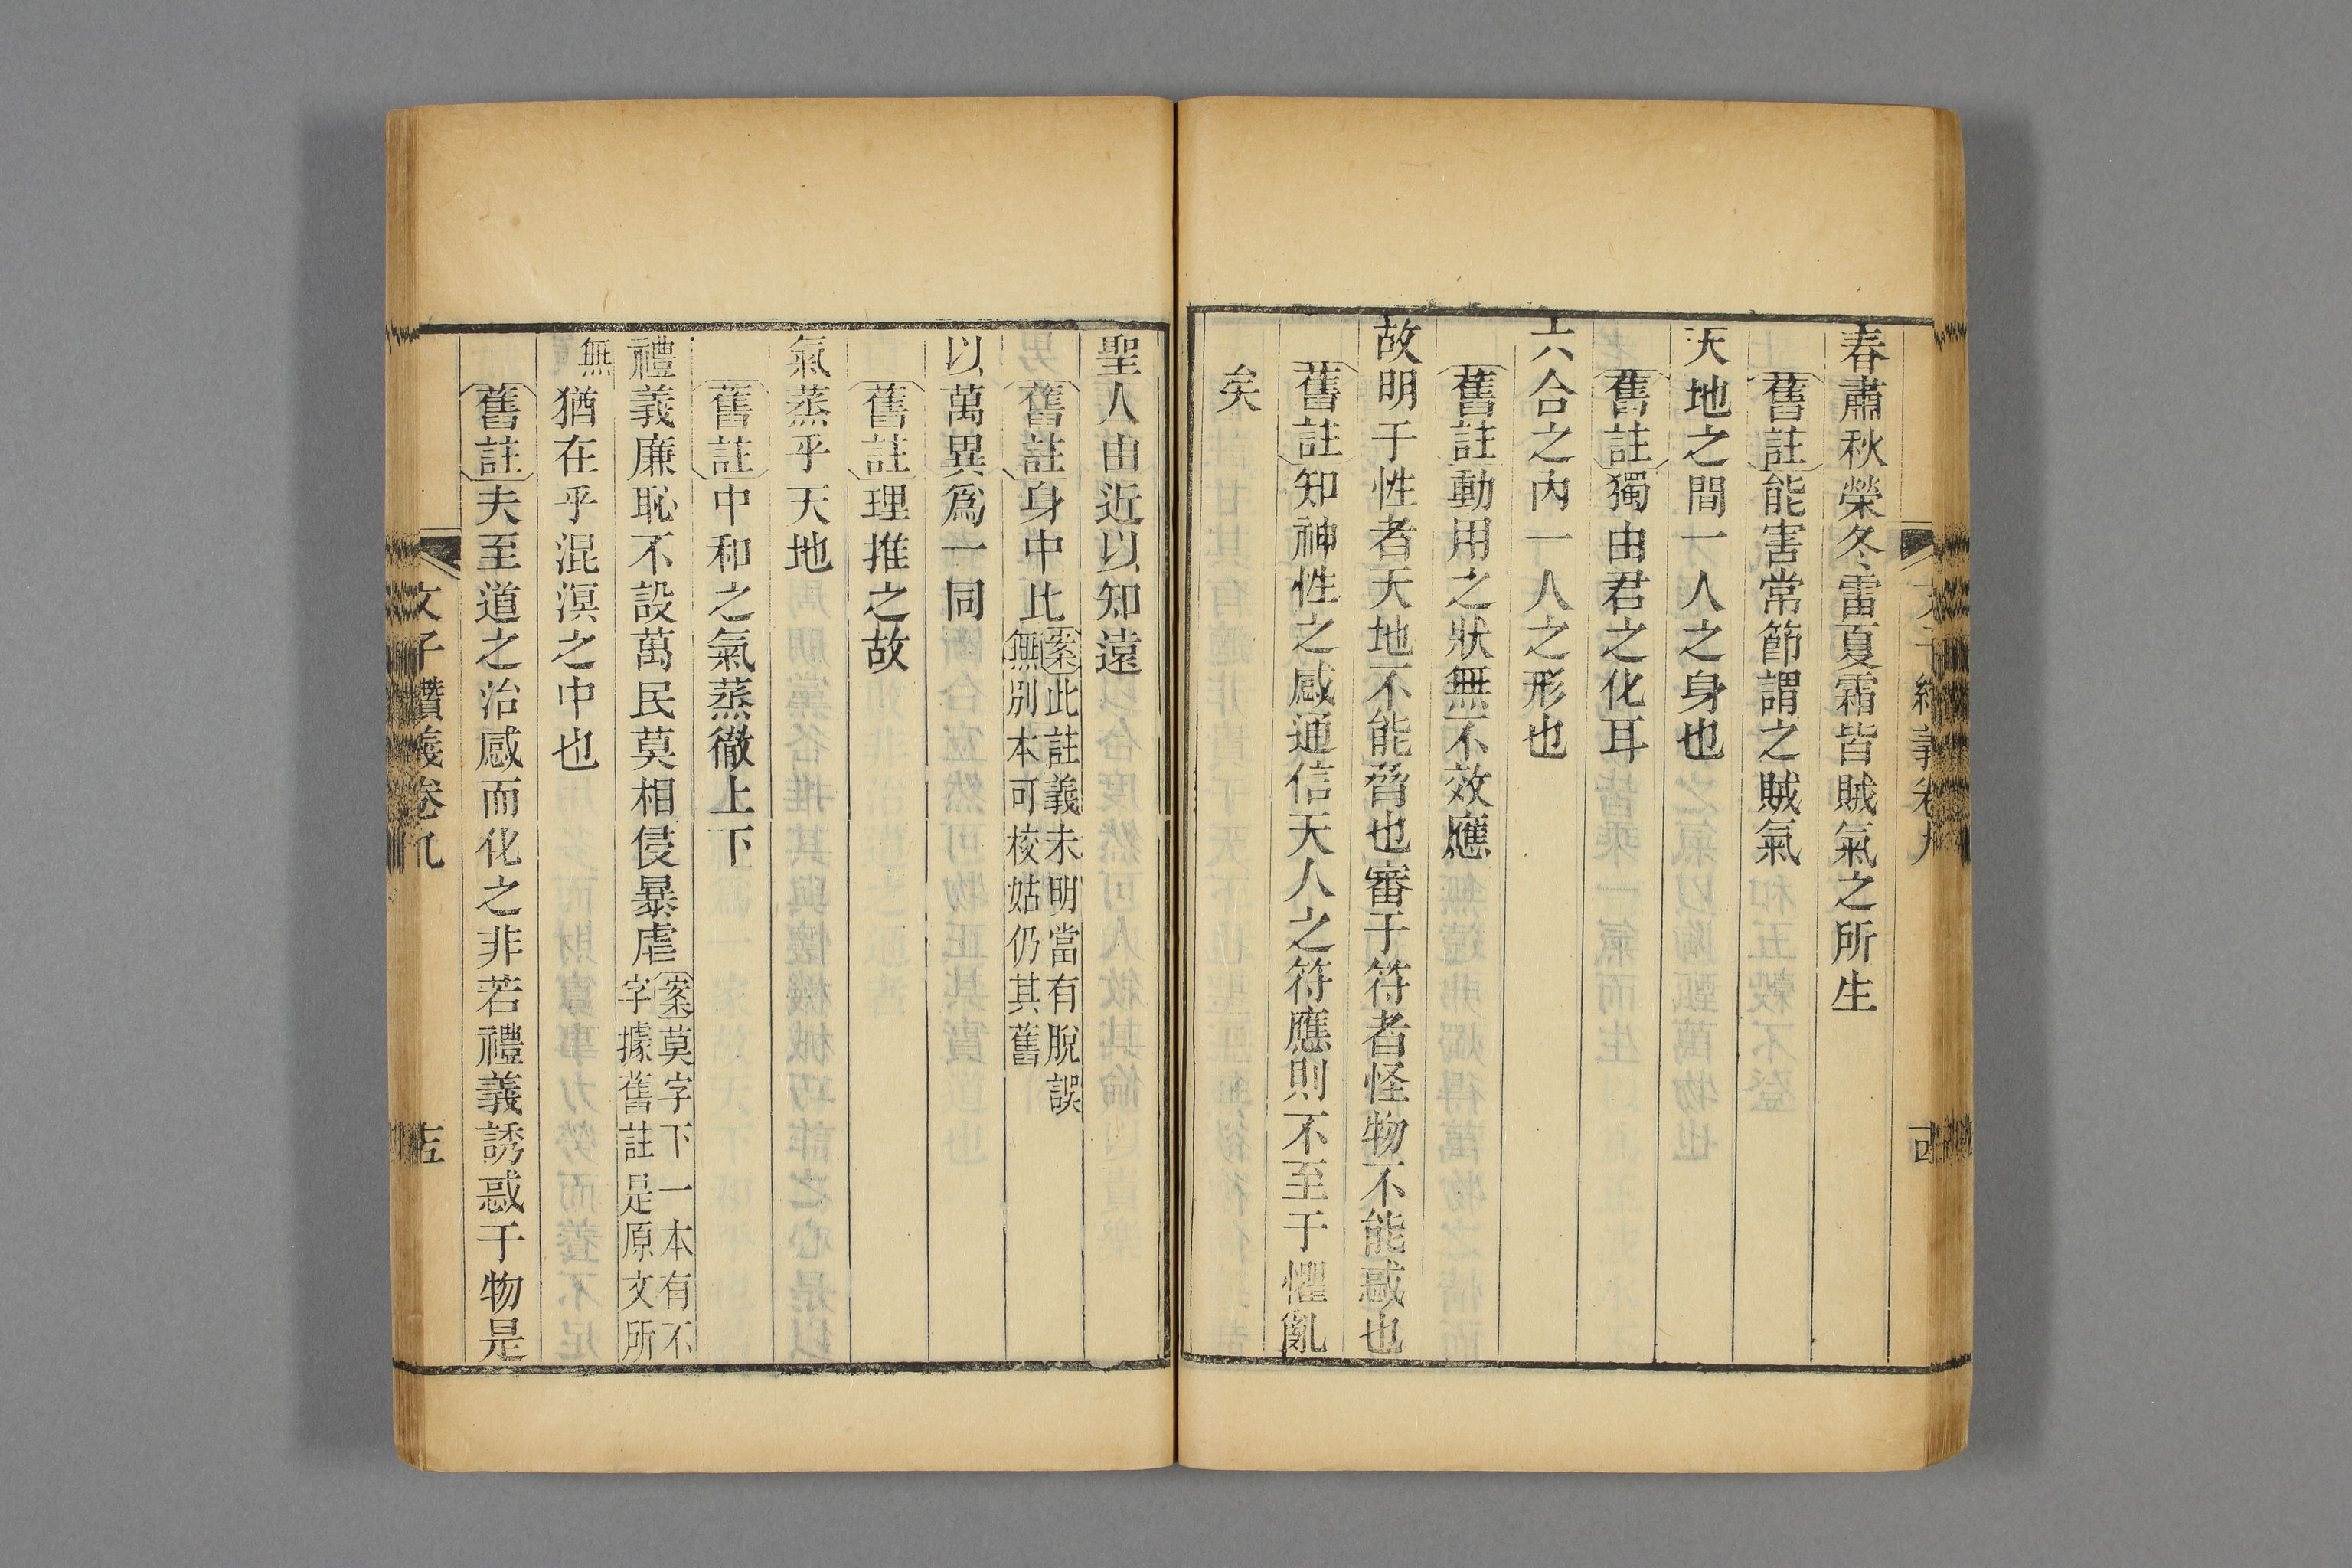 春肅秋榮冬雷夏霜皆賊氣之所生
舊註能害常節謂之賊氣
天地之間一人之身也
舊註獨由君之化耳
六合之內一人之形也
舊註動用之狀無不效應
故明于性者天地不能脅也審于符者怪物不能惑也
舊註知神性之感通信天人之符應則不至于懼亂
矣
聖人由近以知遠
舊註身中比案此註義未明當有脫誤
無別本可校姑仍其舊
以萬異爲一同
舊註理推之故
氣蒸乎天地
舊註中和之氣蒸徹上下
禮義廉恥不設萬民莫相侵暴虐案莫字下一本有不
字據舊註是原文所
無猶在乎混溟之中也
舊註夫至道之治感而化之非若禮義誘惑于物是
文子纘義卷九